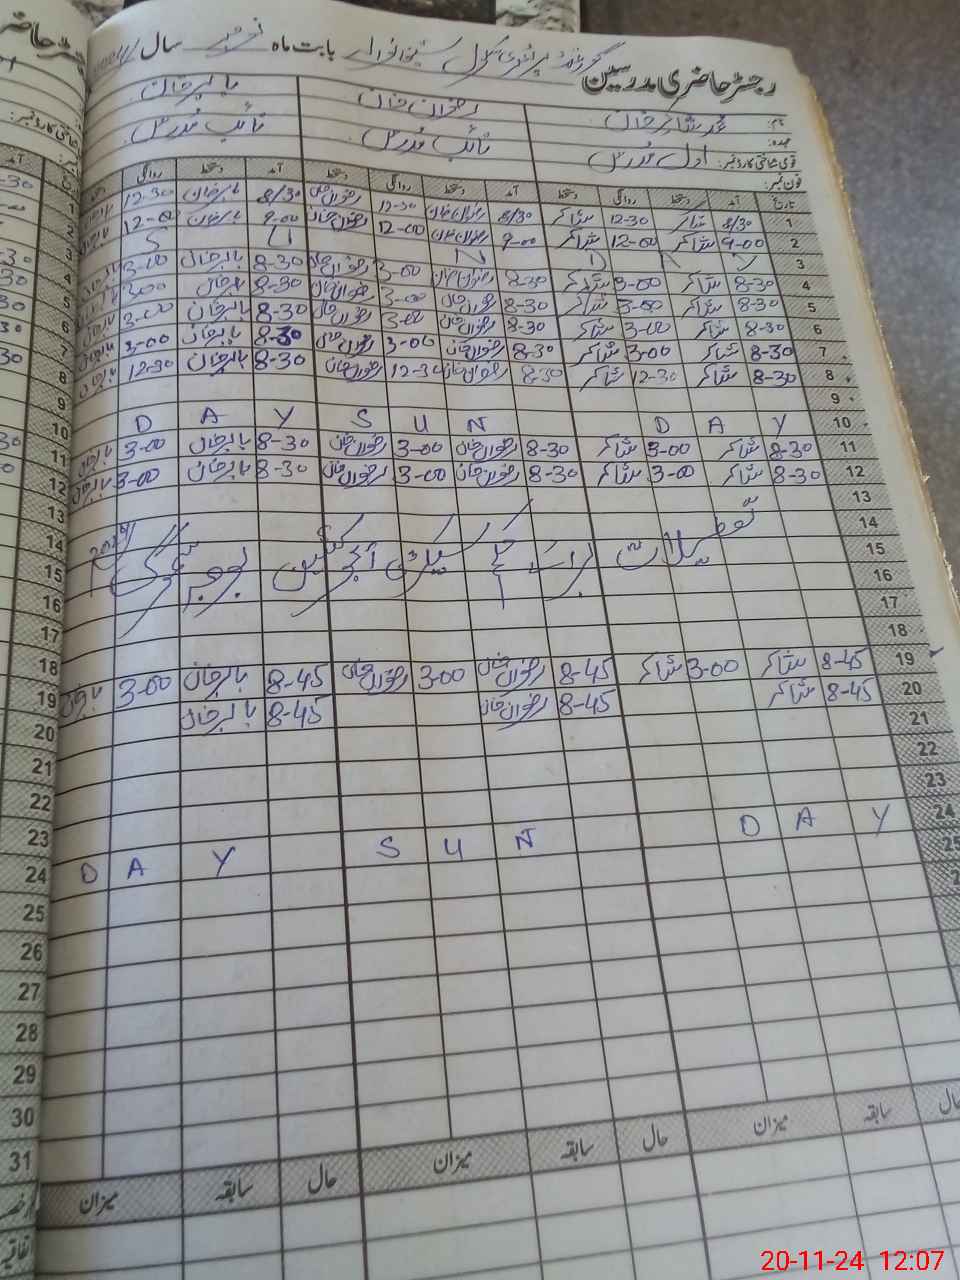 رجسٹر حاضری مدرسین گورنمنٹ پرائمری سکول بابت ماہ نومبر سال
نام: محمد شاکر خان رضوان خان بابر خان
عہدہ: اول مدرس نائب مدرس نائب مدرس
قومی شناختی کارڈ نمبر:
فون نمبر:
تاریخ آمد دستخط روانگی دستخط آمد دستخط روانگی دستخط آمد دستخط روانگی
1 8/30 شاکر 12-30 شاکر 8/30 رضوان خان 12-30 رضوان خان 8/30 بابر خان 12-30 بابر خان
2 9-00 شاکر 12-00 شاکر 9-00 رضوان خان 12-00 رضوان خان 9-00 بابر خان 12-00 بابر خان
3 Y A D N U S
4 8-30 شاکر 3-00 شاکر 8-30 رضوان خان 3-00 رضوان خان 8-30 بابر خان 3-00 بابر خان
5 8-30 شاکر 3-00 شاکر 8-30 رضوان خان 3-00 رضوان خان 8-30 بابر خان 3-00 بابر خان
6 8-30 شاکر 3-00 شاکر 8-30 رضوان خان 3-00 رضوان خان 8-30 بابر خان 3-00 بابر خان
7 8-30 شاکر 3-00 شاکر 8-30 رضوان خان 3-00 رضوان خان 8-30 بابر خان 3-00 بابر خان
8 8-30 شاکر 12-30 شاکر 8-30 رضوان خان 12-30 رضوان خان 8-30 بابر خان 12-30 بابر خان
9
10 D A Y S U N D A Y
11 8-30 شاکر 3-00 شاکر 8-30 رضوان خان 3-00 رضوان خان 8-30 بابر خان 3-00 بابر خان
12 8-30 شاکر 3-00 شاکر 8-30 رضوان خان 3-00 رضوان خان 8-30 بابر خان 3-00 بابر خان
13
14
15 تعطیلات برائے
16
17
18
19 8-45 شاکر 3-00 شاکر 8-45 رضوان خان 3-00 رضوان خان 8-45 بابر خان 3-00 بابر خان
20 8-45 شاکر 8-45 رضوان خان 8-45 بابر خان
21
22
23
24 D A Y S U N D A Y
25
26
27
28
29
30
31
حال سابقہ میزان حال سابقہ میزان حال سابقہ میزان
20-11-24 12:07